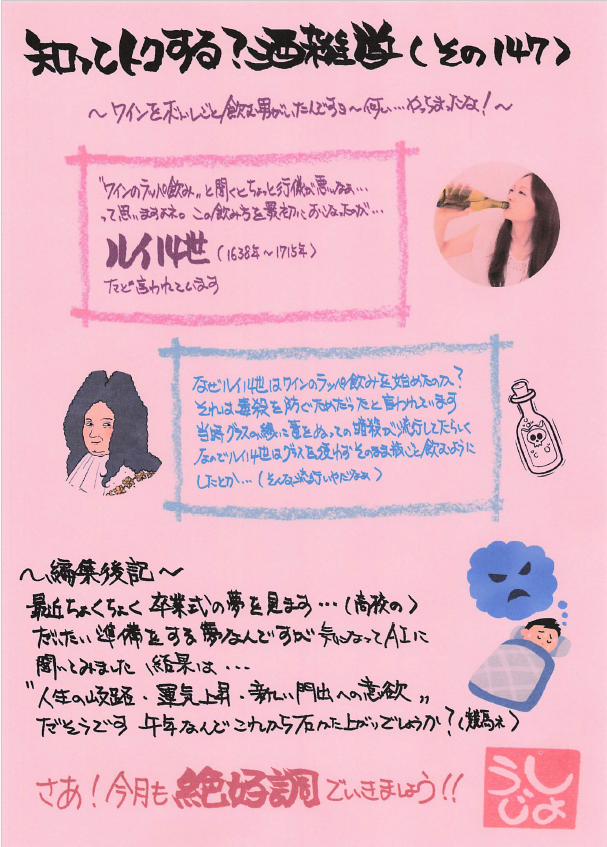 知ってトクする?酒雑学(その147)
~ワインをボトルごと飲む男がいたんです日~何ぃ…やっちまったな!~
"ワインのラッパ飲み"と聞くとちょっと行儀が悪いなぁ…
って思いますよね。この飲み方を最初におこなったのが…
ルイ14世(1638年~1715年)
だと言われています
なぜルイ14世はワインのラッパ飲みを始めたのか?
それは毒殺を防ぐためだったと言われています
当時グラスの縁に毒をぬっての暗殺が流行してたらしく
なのでルイ14世はグラスを使わずそのまま瓶ごと飲むように
したとか…(そんな流行いやだなぁ)
~編集後記~
最近ちょくちょく卒業式の夢を見ます…(高校の)
だいたい準備をする夢なんですが気になってAIに
聞いてみました 結果は…
"人生の岐路・運気上昇・新しい門出への意欲"
だそうです 午年なんでこれから右肩上がりでしょうか?(競馬ネ)
さあ!今月も絶好調でいきましょう!!
うしじょ